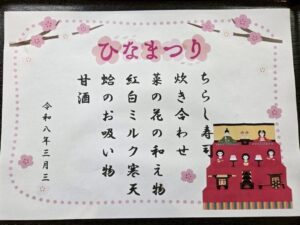 ひなまつり
ちらし寿司
炊き合わせ
菜の花の和え物
紅白ミルク寒天
蛤のお吸い物
甘酒
令和八年三月三